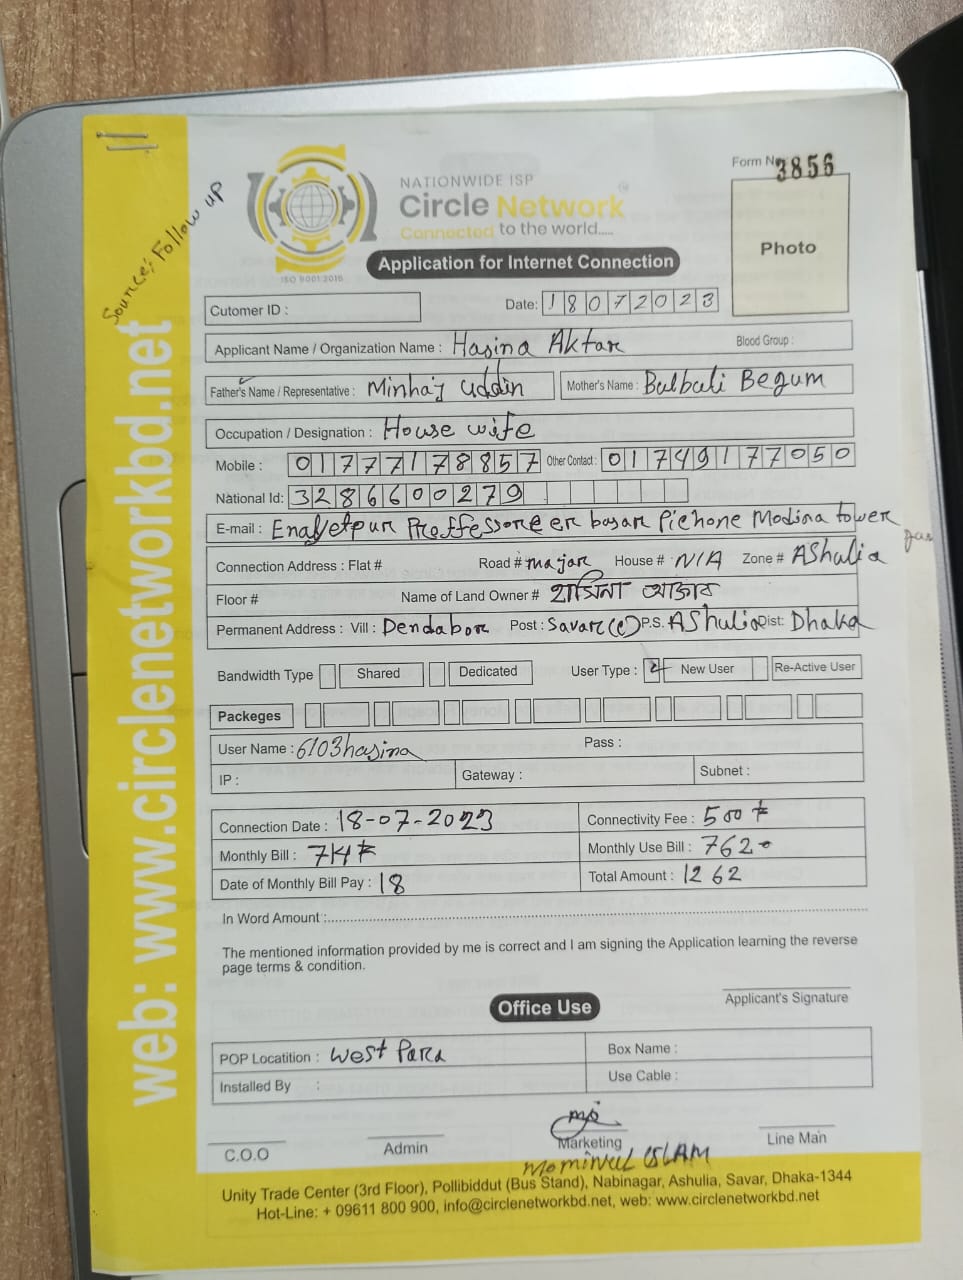 Form No. 3856
NATIONWIDE ISP
Circle Network
Connected to the world.....
ISO 9001:2015
Application for Internet Connection
Photo
Source: Follow up
web: www.circlenetworkbd.net
Cutomer ID :
Date: 18072023
Applicant Name / Organization Name : Hasina Aktar
Blood Group :
Father's Name / Representative : Minhaj uddin
Mother's Name : Bulbuli Begum
Occupation / Designation : House wife
Mobile : 01777178857 Other Contact : 01749177050
National Id: 3286600279
E-mail : Enayetpur Proffessoreer basar Pichone Modina tower
Connection Address : Flat # Road # majar House # N/A Zone # AShulia
Floor # Name of Land Owner # হাসিনা আক্তার
Permanent Address : Vill : Dendabor Post : Savar (C) P.S. AShulia Dist: Dhaka
Bandwidth Type Shared Dedicated User Type : New User Re-Active User
Packeges
User Name : 6103hasina Pass :
IP : Gateway : Subnet :
Connection Date : 18-07-2023 Connectivity Fee : 500
Monthly Bill : 714 Monthly Use Bill : 762
Date of Monthly Bill Pay : 18 Total Amount : 1262
In Word Amount :
The mentioned information provided by me is correct and I am signing the Application learning the reverse
page terms & condition.
Applicant's Signature
Office Use
POP Locatition : West Para Box Name :
Installed By : Use Cable :
C.O.O Admin Marketing Line Man
Mominul ISLAM
Unity Trade Center (3rd Floor), Pollibiddut (Bus Stand), Nabinagar, Ashulia, Savar, Dhaka-1344
Hot-Line: + 09611 800 900, info@circlenetworkbd.net, web: www.circlenetworkbd.net